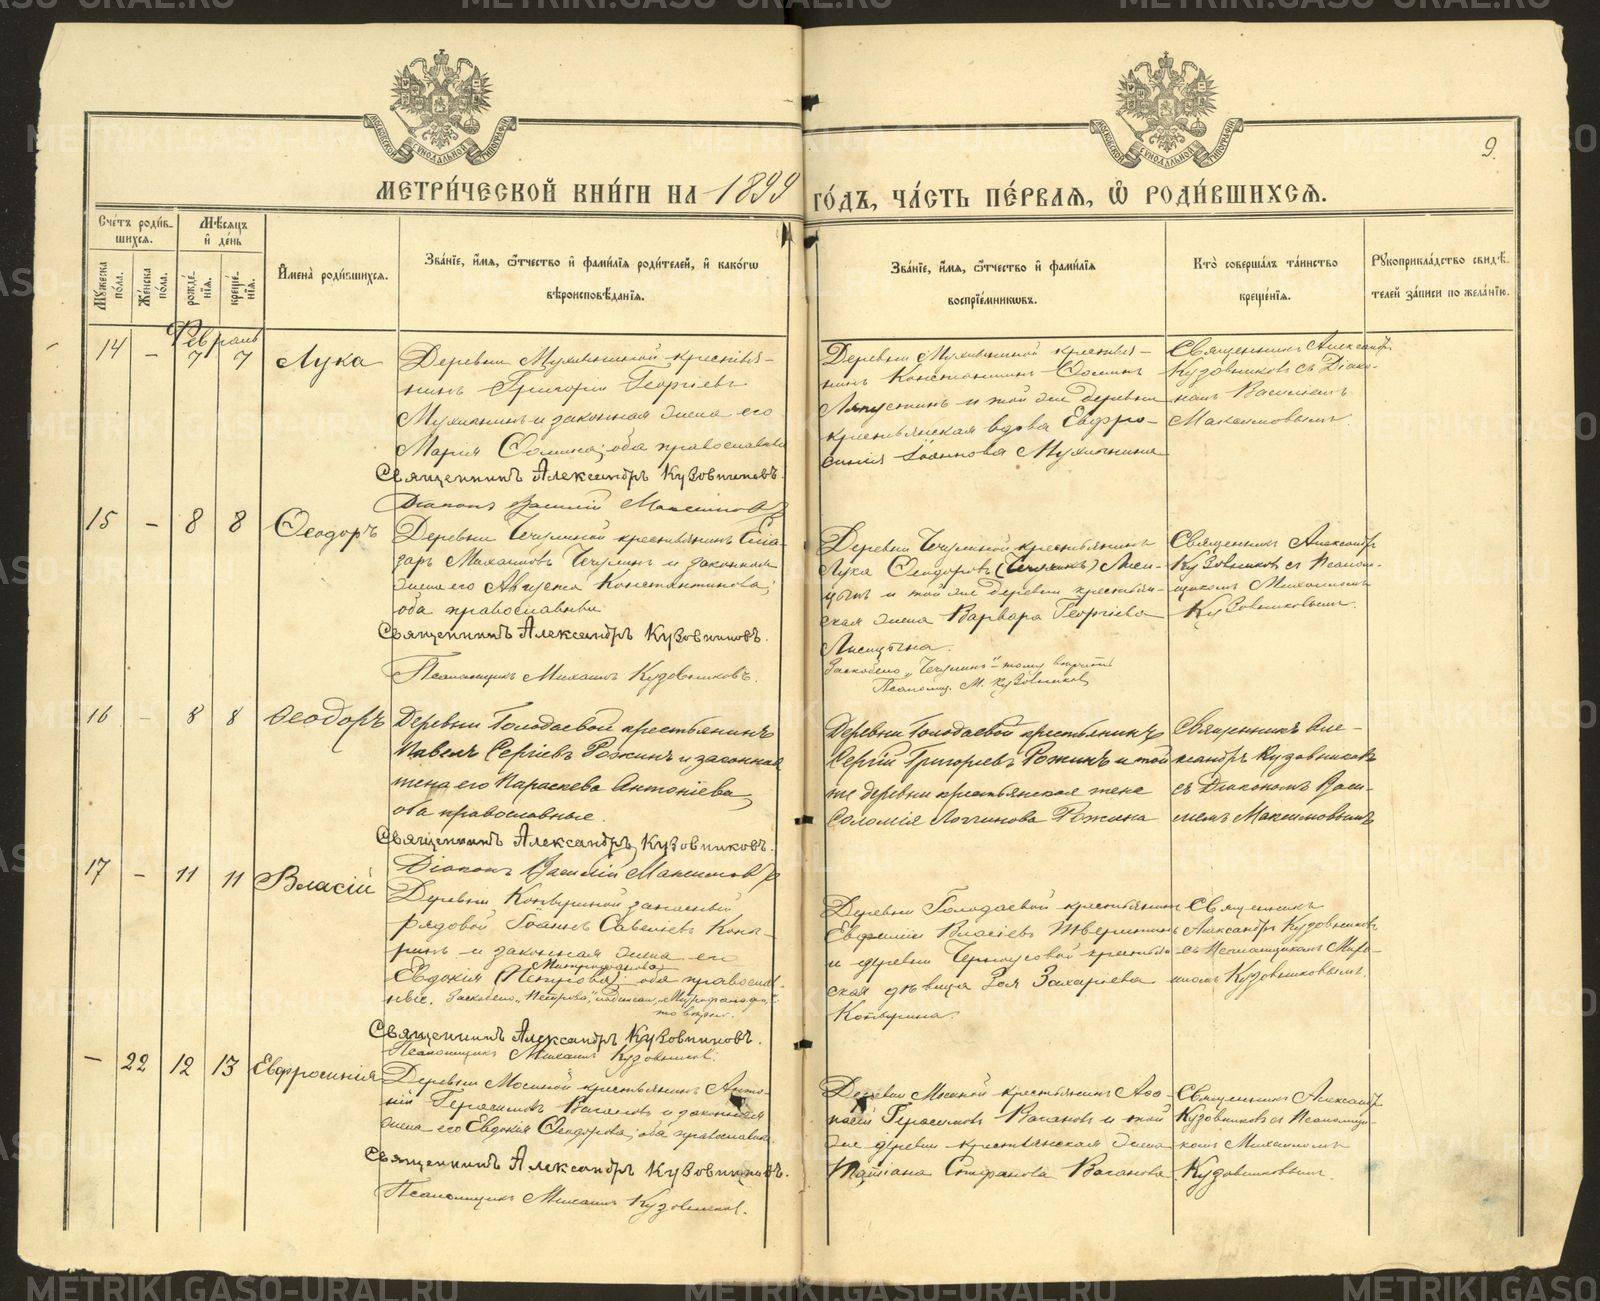 МЕТРИ́ЧЕСКОЙ КНИ́ГИ НА 1899 ГО́ДЪ, ЧА́СТЬ ПЕ́РВАЯ, Ѡ РОДИ́ВШИХСЯ.
9.
Счетъ роди́в-
шихся.
Мѣсяцъ
и день
Мужеска по́ла.
Же́нска по́ла.
рожде́нїя.
креще́нїя.
Имена̀ роди́вшихся.
Зва́нїе, и́мя, ѻ́тчество и фами́лїя роди́телей, и како́гѡ
вѣроисповѣ́данїя.
Зва́нїе, и́мя, ѻ́тчество и фами́лїя
воспрїе́мникѡвъ.
Кто̀ соверша́лъ та́инство
креще́нїя.
Рꙋкоприкла́дство свидѣ́-
телей за́писи по жела́нїю.
Февраль
14 – 7 7 Лука
Деревни Мухлыниной крестья-
нинъ Григорій Георгіевъ
Мухлынинъ и законная жена его
Марія Ѳомина; оба православные
Священникъ Александръ Кузовниковъ.
Діаконъ Василій Максимовъ
Деревни Мухлыниной крестья-
нинъ Константинъ Ѳоминъ
Ляпустинъ и той же деревни
крестьянская вдова Евфро-
синія Іоаннова Мухлынина
Священникъ Александръ
Кузовниковъ съ Діако-
номъ Василіемъ
Максимовымъ.
15 – 8 8 Ѳеодоръ
Деревни Чечулиной крестьянинъ Елеа-
заръ Михаиловъ Чечулинъ и законная
жена его Августа Константинова;
оба православные
Священникъ Александръ Кузовниковъ.
Псаломщикъ Михаилъ Кузовниковъ.
Деревни Чечулиной крестьянинъ
Лука Ѳеодоровъ (Чечулинъ) Лиси-
цынъ и той же деревни крестьян-
ская жена Варвара Георгіева
Лисицына.
Заскоблено „Чечулинъ“ тому вѣрить
Псаломщ. М. Кузовниковъ
Священникъ Александръ
Кузовниковъ съ Псалом-
щикомъ Михаиломъ
Кузовниковымъ.
16 – 8 8 Ѳеодоръ
Деревни Голодаевой крестьянинъ
Павелъ Сергіевъ Рожинъ и законная
жена его Параскева Антоніева,
оба православные.
Священникъ Александръ Кузовниковъ.
Діаконъ Василій Максимовъ
Деревни Голодаевой крестьянинъ
Сергій Григорьевъ Рожинъ и той
же деревни крестьянская жена
Соломія Логгинова Рожина
Священникъ Але-
ксандръ Кузовниковъ
съ Діакономъ Васи-
ліемъ Максимовымъ
17 – 11 11 Власій
Деревни запасный
рядовой Іоаннъ Савельевъ
и законная жена его
Митрофанова
Евдокія (Петрова); оба православ-
ные. Заскоблено „Петрова“,
Священникъ Александръ Кузовниковъ.
Псаломщикъ Михаилъ Кузовниковъ.
Деревни Голодаевой крестьянинъ
Евфимій Власіевъ
и деревни Черноусовой крестьян-
ская дѣвица Зоя Захаріева
Священникъ
Александръ Кузовниковъ
съ Псаломщикомъ Миха-
иломъ Кузовниковымъ.
– 22 12 13 Евфросинія
Деревни Мосиной крестьянинъ Анто-
ній Герасимовъ Ваганов и законная
жена его Евдокія Ѳеодорова; оба православные.
Священникъ Александръ Кузовниковъ.
Псаломщикъ Михаилъ Кузовниковъ.
Деревни Мосиной крестьянинъ Аѳа-
насій Герасимовъ Вагановъ и той
же деревни крестьянская жена
Татіана Стефанова Ваганова
Священникъ Александръ
Кузовниковъ съ Псаломщи-
комъ Михаиломъ
Кузовниковымъ.
METRIKI.GASO-URAL.RU